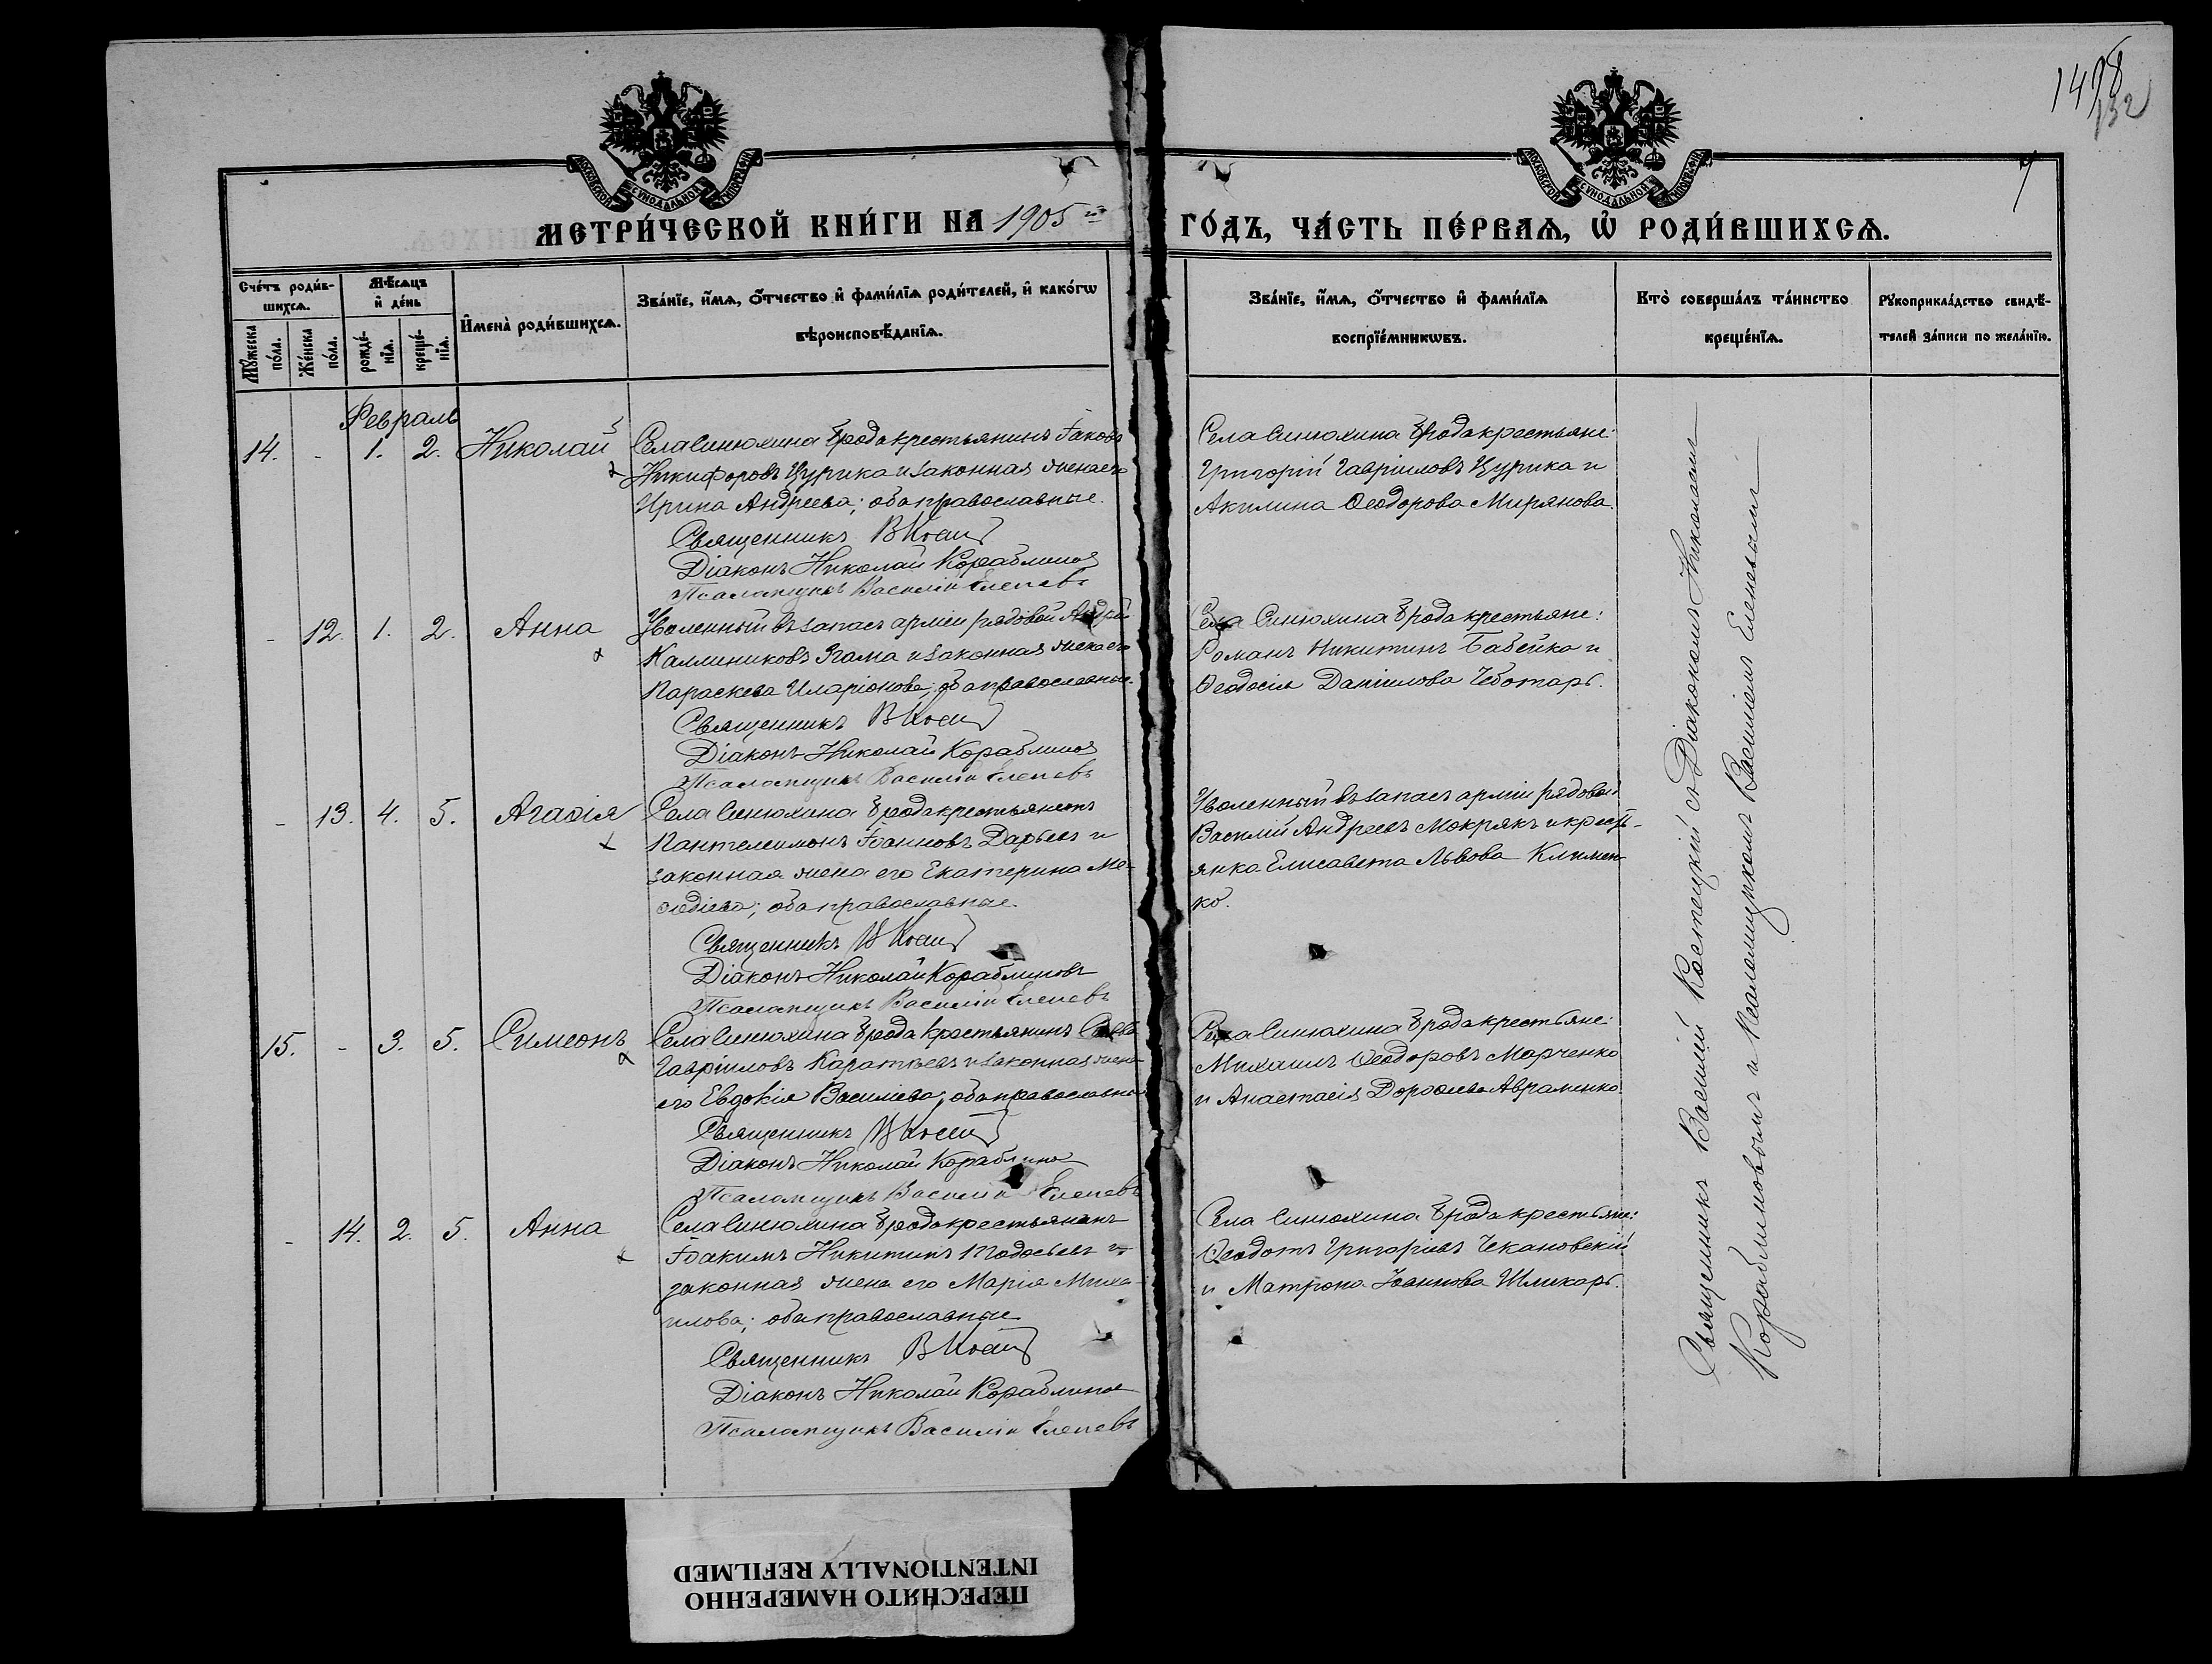 1498
132
7
МОСКОВСКОЙ СѴНОДАЛЬНОЙ ТИПОГРАФІИ
МОСКОВСКОЙ СѴНОДАЛЬНОЙ ТИПОГРАФІИ
МЕТРИ́ЧЕСКОЙ КНИ́ГИ НА 1905 й
ГО́ДЪ, ЧА́СТЬ ПЕ́РВАѦ, Ѡ҆ РОДИ́ВШИХСѦ.
Сче́тъ роди́в-
шихсѧ.
Мꙋ́жеска
по́ла.
Же́нска
по́ла.
Мѣ́сѧцъ
и҆ де́нь
рожде́-
нїѧ.
креще́-
нїѧ.
И҆мена̀ роди́вшихсѧ.
Зва́нїе, и҆́мѧ, ѻ҆́тчество и҆ фами́лїѧ роди́телей, и҆ како́гѡ
вѣроисповѣ́данїѧ.
Зва́нїе, и҆́мѧ, ѻ҆́тчество и҆ фами́лїѧ
воспрїе́мникѡвъ.
Кто̀ соверша́лъ та́инство
креще́нїѧ.
Рꙋкоприкла́дство свидѣ́-
телей за́писи по жела́нїю.
Февраль
14. - 1. 2. Николай
Села Синюхина Брода крестьянинъ Іаковъ
Никифоровъ Цурика и законная жена его
Ирина Андреева; оба православные.
Священникъ
Діаконъ Николай Кораблиновъ
Псаломщикъ Василій Еленевъ
Села Синюхина Брода крестьяне:
Григорій Гавріиловъ Цурика и
Акилина Ѳеодорова Мирянова.
- 12. 1. 2. Анна
Уволенный въ запасъ арміи рядовой Андрей
Каллиниковъ Згама и законная жена его
Параскева Иларіонова; оба православные.
Священникъ
Діаконъ Николай Кораблиновъ
Псаломщикъ Василій Еленевъ
Села Синюхина Брода крестьяне:
Романъ Никитинъ Бабейко и
Ѳеодосія Даніилова Чеботарь.
- 13. 4. 5. Агаѳія
Села Синюхина Брода крестьянинъ
Пантелеимонъ Іоанновъ Дарьевъ и
законная жена его Екатерина Ме-
ѳодіева; оба православные.
Священникъ
Діаконъ Николай Кораблиновъ
Псаломщикъ Василій Еленевъ
Уволенный въ запасъ арміи рядовой
Василій Андреевъ Мокрякъ и кресть-
янка Елисавета Львова Климен-
ко.
15. - 3. 5. Симеонъ
Села Синюхина Брода крестьянинъ Савва
Гавріиловъ Каратѣевъ и законная жена
его Евдокія Василіева; оба православные
Священникъ
Діаконъ Николай Кораблиновъ
Псаломщикъ Василій Еленевъ
Села Синюхина Брода крестьяне:
Михаилъ Ѳеодоровъ Марченко
и Анастасія Дороѳеева Авраменко.
- 14. 2. 5. Анна
Села Синюхина Брода крестьянинъ
Іоакимъ Никитинъ Тодосьевъ и
законная жена его Марія Миха-
илова; оба православные
Священникъ
Діаконъ Николай Кораблиновъ
Псаломщикъ Василій Еленевъ
Села Синюхина Брода крестьяне:
Ѳеодотъ Григоріевъ Чекановскій
и Матрона Іоаннова Шликарь.
Священникъ Василій Костецкій съ Діакономъ Николаемъ
Кораблиновымъ и Псаломщикомъ Василіемъ Еленевымъ
ПЕРЕСНЯТО НАМЕРЕННО
INTENTIONALLY REFILMED